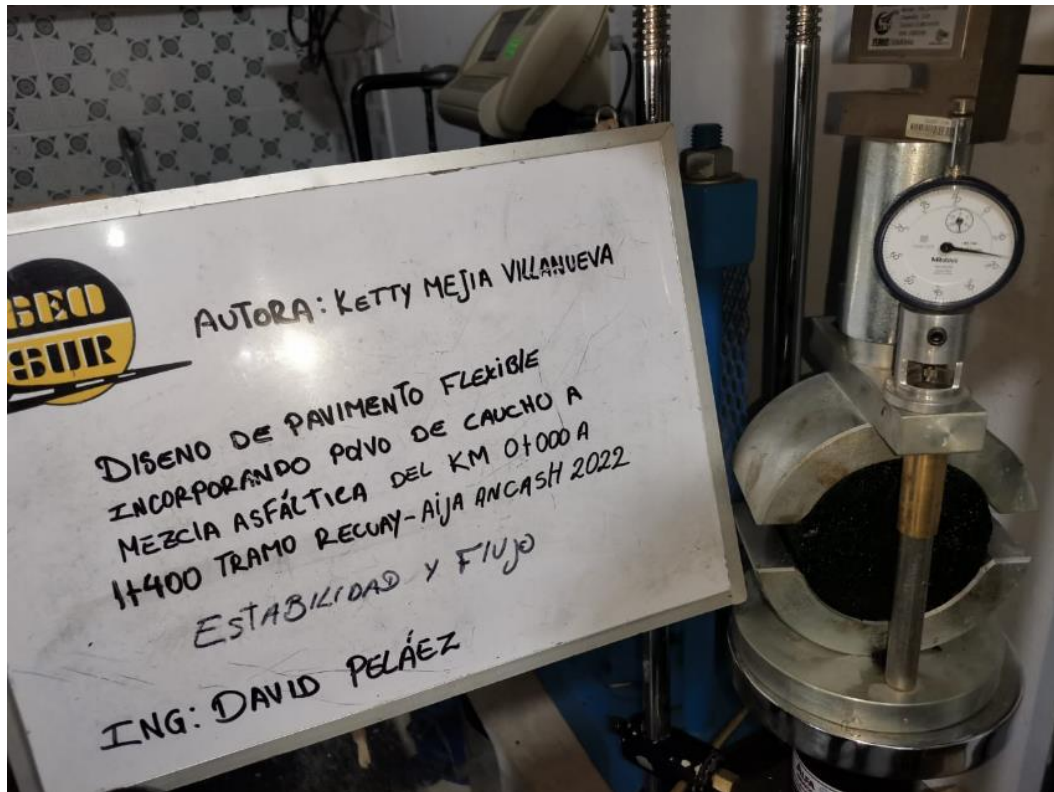 GEO
SUR
AUTORA: KETTY MEJIA VILLANUEVA
DISENO DE PAVIMENTO FLEXIBLE
INCORPORANDO POLVO DE CAUCHO A
MEZCLA ASFÁLTICA DEL KM 0+000 A
1+400 TRAMO RECUAY-AIJA ANCASH 2022
ESTABILIDAD Y FLUJO
ING: DAVID PELÁEZ
Mitutoyo